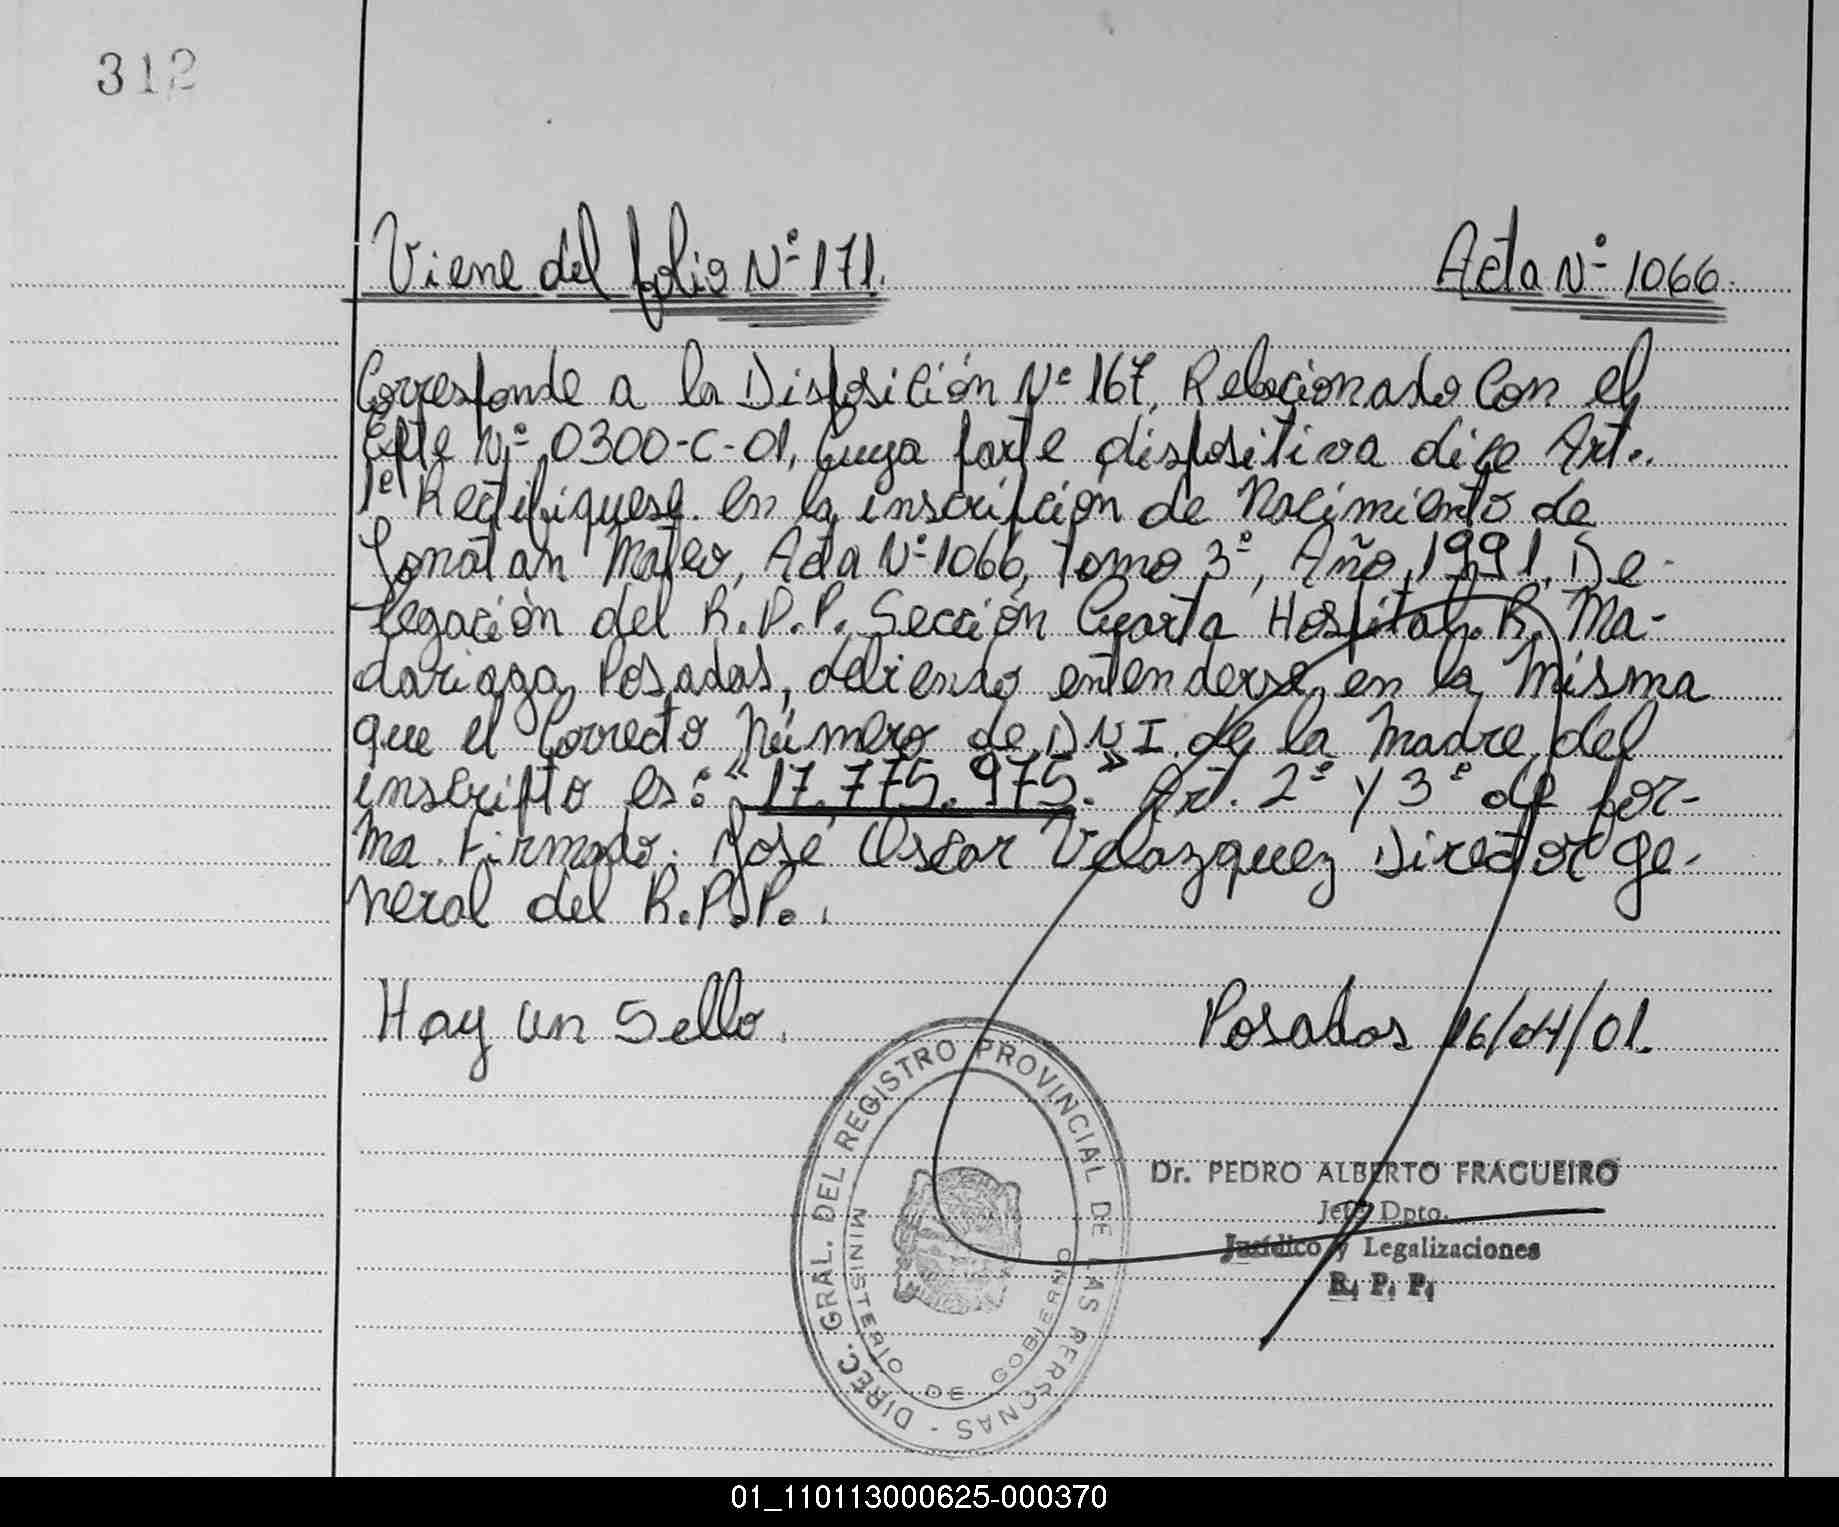 312
Viene del folio Nº 171. Acta Nº 1066.
Corresponde a la Disposición Nº 167, Relacionado Con el
Expte Nº 0300-C-01, Cuya parte dispositiva dice Art..
1º Rectifiquese en la inscripción de Nacimiento de
Jonatan Mateo, Acta Nº 1066, Tomo 3º, Año 1991, De-
legación del R.P.P. Sección Cuarta Hospital R. Ma-
dariaga, Posadas, debiendo entenderse en la Misma
que el Correcto Número de DNI de la Madre del
inscripto es: "17.775.975." Art. 2º y 3º de for-
ma. Firmado. José Oscar Velazquez Director Ge-
neral del R.P.P..
Hay un Sello. Posadas 16/04/01.
DIREC. GRAL. DEL REGISTRO PROVINCIAL DE LAS PERSONAS -
MINISTERIO DE GOBIERNO
Dr. PEDRO ALBERTO FRAGUEIRO
Jefe Dpto.
Jurídico y Legalizaciones
R. P. P.
01_110113000625-000370